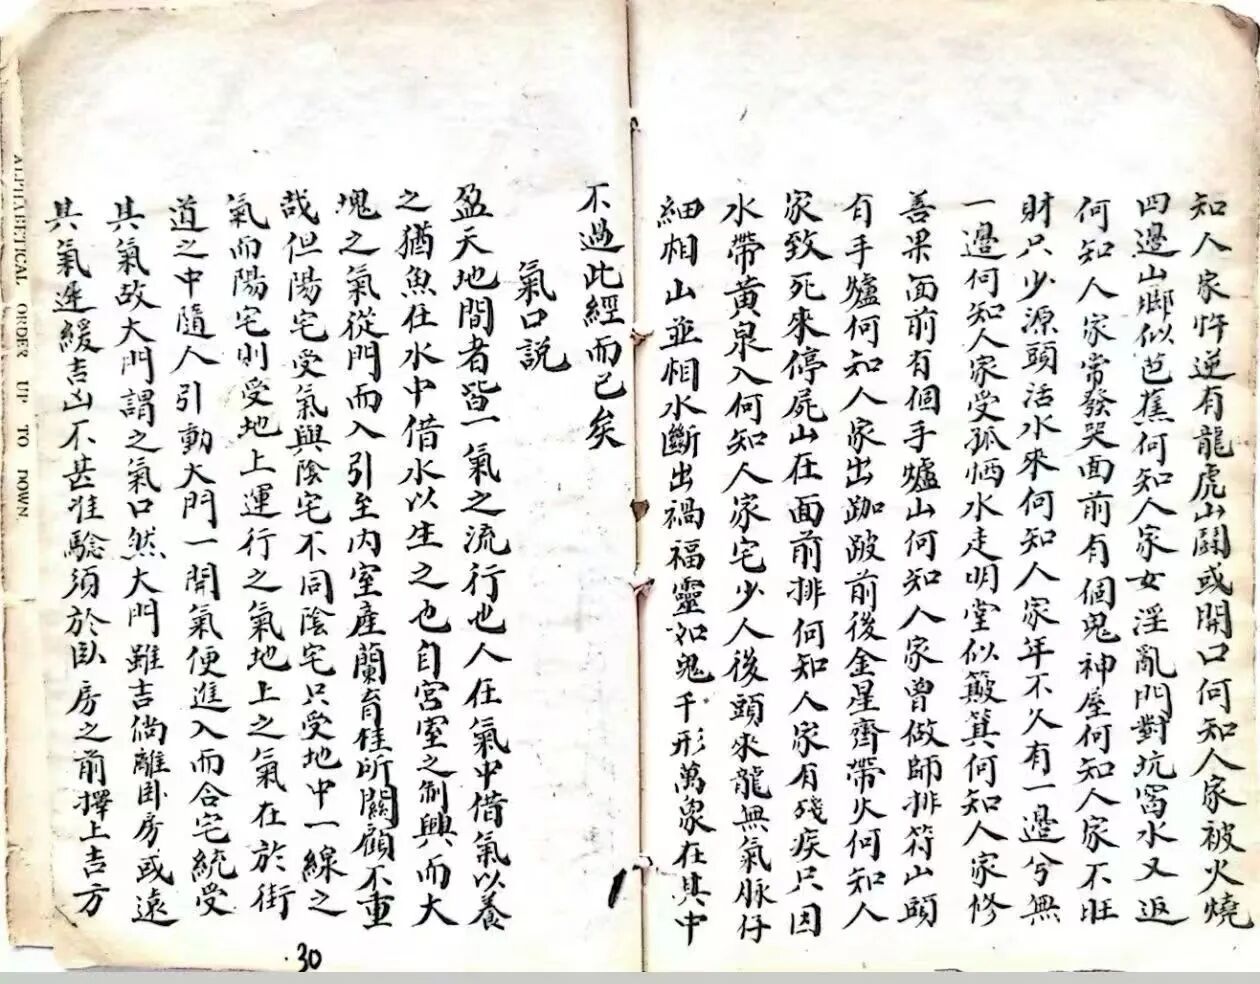 知人家忤逆有龍虎山鬪或開口何知人家被火燒
四邊山腳似芭蕉何知人家女淫亂門對坑窩水又返
何知人家常發哭面前有個鬼神屋何知人家不旺
財只少源頭活水來何知人家年不久有一邊兮無
一邊何知人家受孤恓水走明堂似簸箕何知人家修
善果面前有個手爐山何知人家曾做師排符山頭
有手爐何知人家出跏跛前後金星齊帶火何知人
家致死來停屍山在面前排何知人家有殘疾只因
水帶黃泉入何知人家宅少人後頭來龍無氣脉仔
細相山並相水斷出禍福靈如鬼千形萬象在其中
不過此經而已矣
氣口説
盈天地間者皆一氣之流行也人在氣中借氣以養
之猶魚在水中借水以生之也自宮室之制興而大
塊之氣從門而入引至內室產蘭育桂所關顧不重
哉但陽宅受氣與陰宅不同陰宅只受地中一線之
氣而陽宅則受地上運行之氣地上之氣在於街
道之中隨人引動大門一開氣便進入而合宅統受
其氣故大門謂之氣口然大門雖吉倘離卧房或遠
其氣遲緩吉凶不甚准驗須於卧房之前擇上吉方
30
ALPHABETICAL ORDER UP TO DOWN